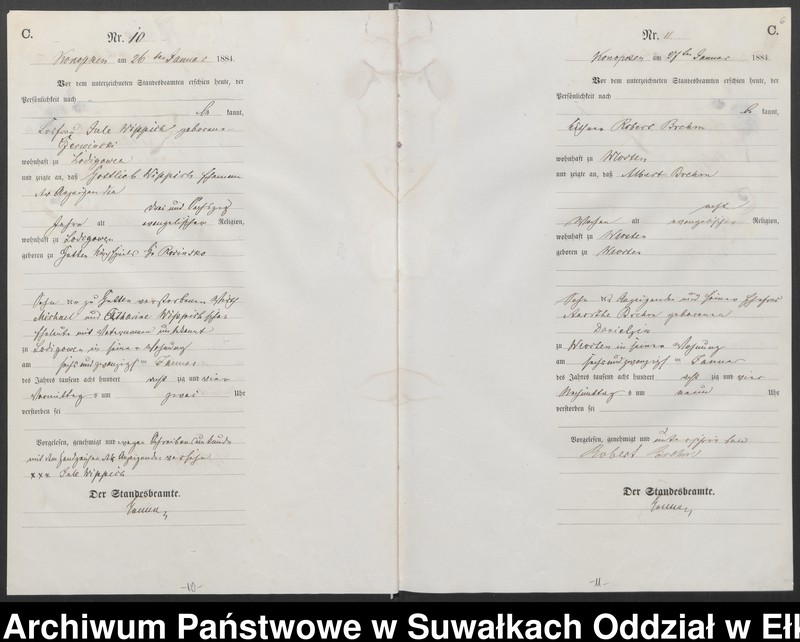 C.
Nr. 10
Konopken am 26ten Januar 1884.
Vor dem unterzeichneten Standesbeamten erschien heute, der
Persönlichkeit nach
be kannt,
Jule Wippich geborene
Czerwinski
wohnhaft zu Lodigowen
und zeigte an, daß Gottlieb Wippich Ehemann
der Anzeigenden
drei und sechszig
Jahre alt evangelischer Religion,
wohnhaft zu Lodigowen
geboren zu Gutten Kirchspiels Gr Rosinsko
Sohn der zu Gutten verstorbenen
Michael und Catharine Wippich
Eheleute mit Vaternamen unbekannt
zu Lodigowen in seiner Wohnung
am sechsundzwanzigsten Januar
des Jahres tausend acht hundert acht zig und vier
Vormittag s um zwei Uhr
verstorben sei
Vorgelesen, genehmigt und wegen Schreibensunkunde
mit dem Handzeichen der Anzeigenden versehen
xxx Jule Wippich
Der Standesbeamte.
-10-
C.
6
Nr. 11
Konopken am 27ten Januar 1884
Vor dem unterzeichneten Standesbeamten erschien heute, der
Persönlichkeit nach
be kannt,
Robert Brehm
wohnhaft zu Worten
und zeigte an, daß Albert Brehm
acht
Wochen alt evangelischer Religion,
wohnhaft zu Worten
geboren zu Worten
Sohn des Anzeigenden und seiner Ehefrau
Brehm geborenen
zu Worten in seiner Wohnung
am sechsundzwanzigsten Januar
des Jahres tausend acht hundert acht zig und vier
Nachmittag s um neun Uhr
verstorben sei
Vorgelesen, genehmigt und unterschrieben
Robert Brehm
Der Standesbeamte.
-11-
Archiwum Państwowe w Suwałkach Oddział w Eł